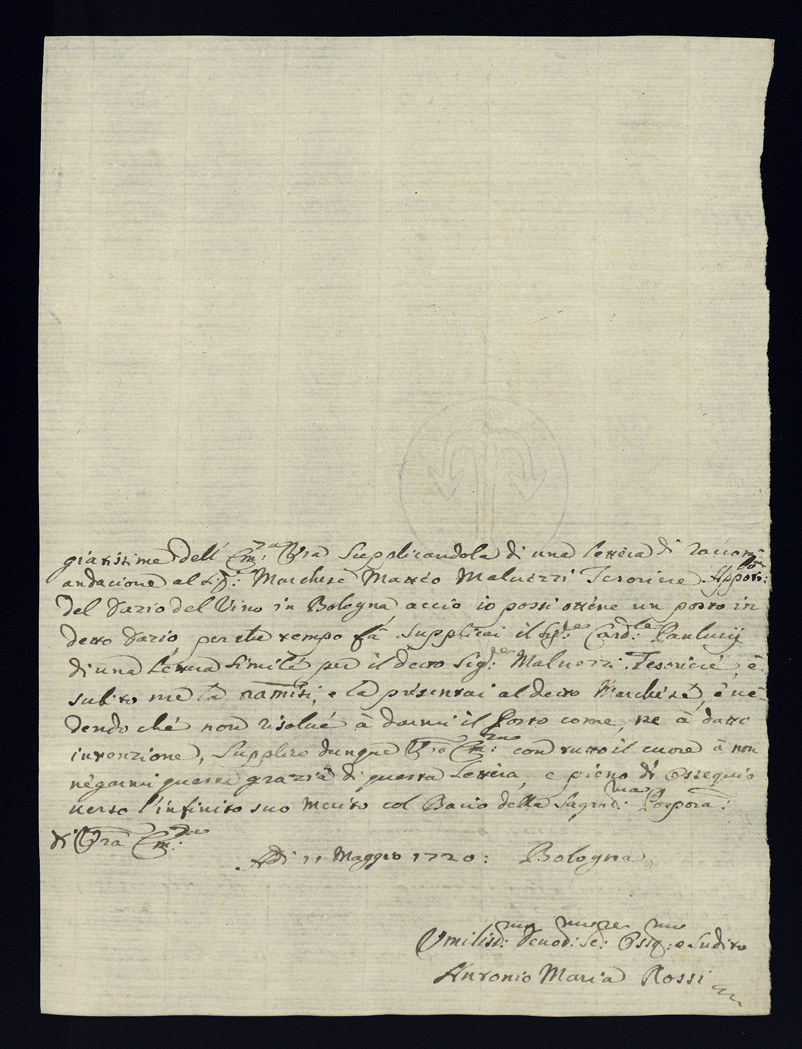 giatissime dell' Em:za Vra Supplicandola di una lettera di racom=
andacione al Sig:r Marchese Matteo Maluezzi Tesoriere Appto:
del Dazio del Vino in Bologna accio io possi ottine un posto in
detto Dazio, perche tempo fà supplicai il Sig:re Card:le Paulucij
di una lettera Simile per il detto Sig:re Maluezzi Tesoriere, è
subito me la ramisi, e la presentai al detto Marchese, è ue=
dendo chè non risolue à darmi il Posto come, ne à datto
intenzione, Supplico dunque Vra Em:za con tutto il cuore à non
negarmi questa grazia di questa lettera, e pieno di ossequio
uerso l'infinito suo merito col Bacio della Sagrd:ma Porpora:
di Vra Em:za
Adi 11 Maggio 1720: Bologna
Vmilisd:mo Deuod: Se: Ossq:mo e Sudito
Antonio Maria Rossi